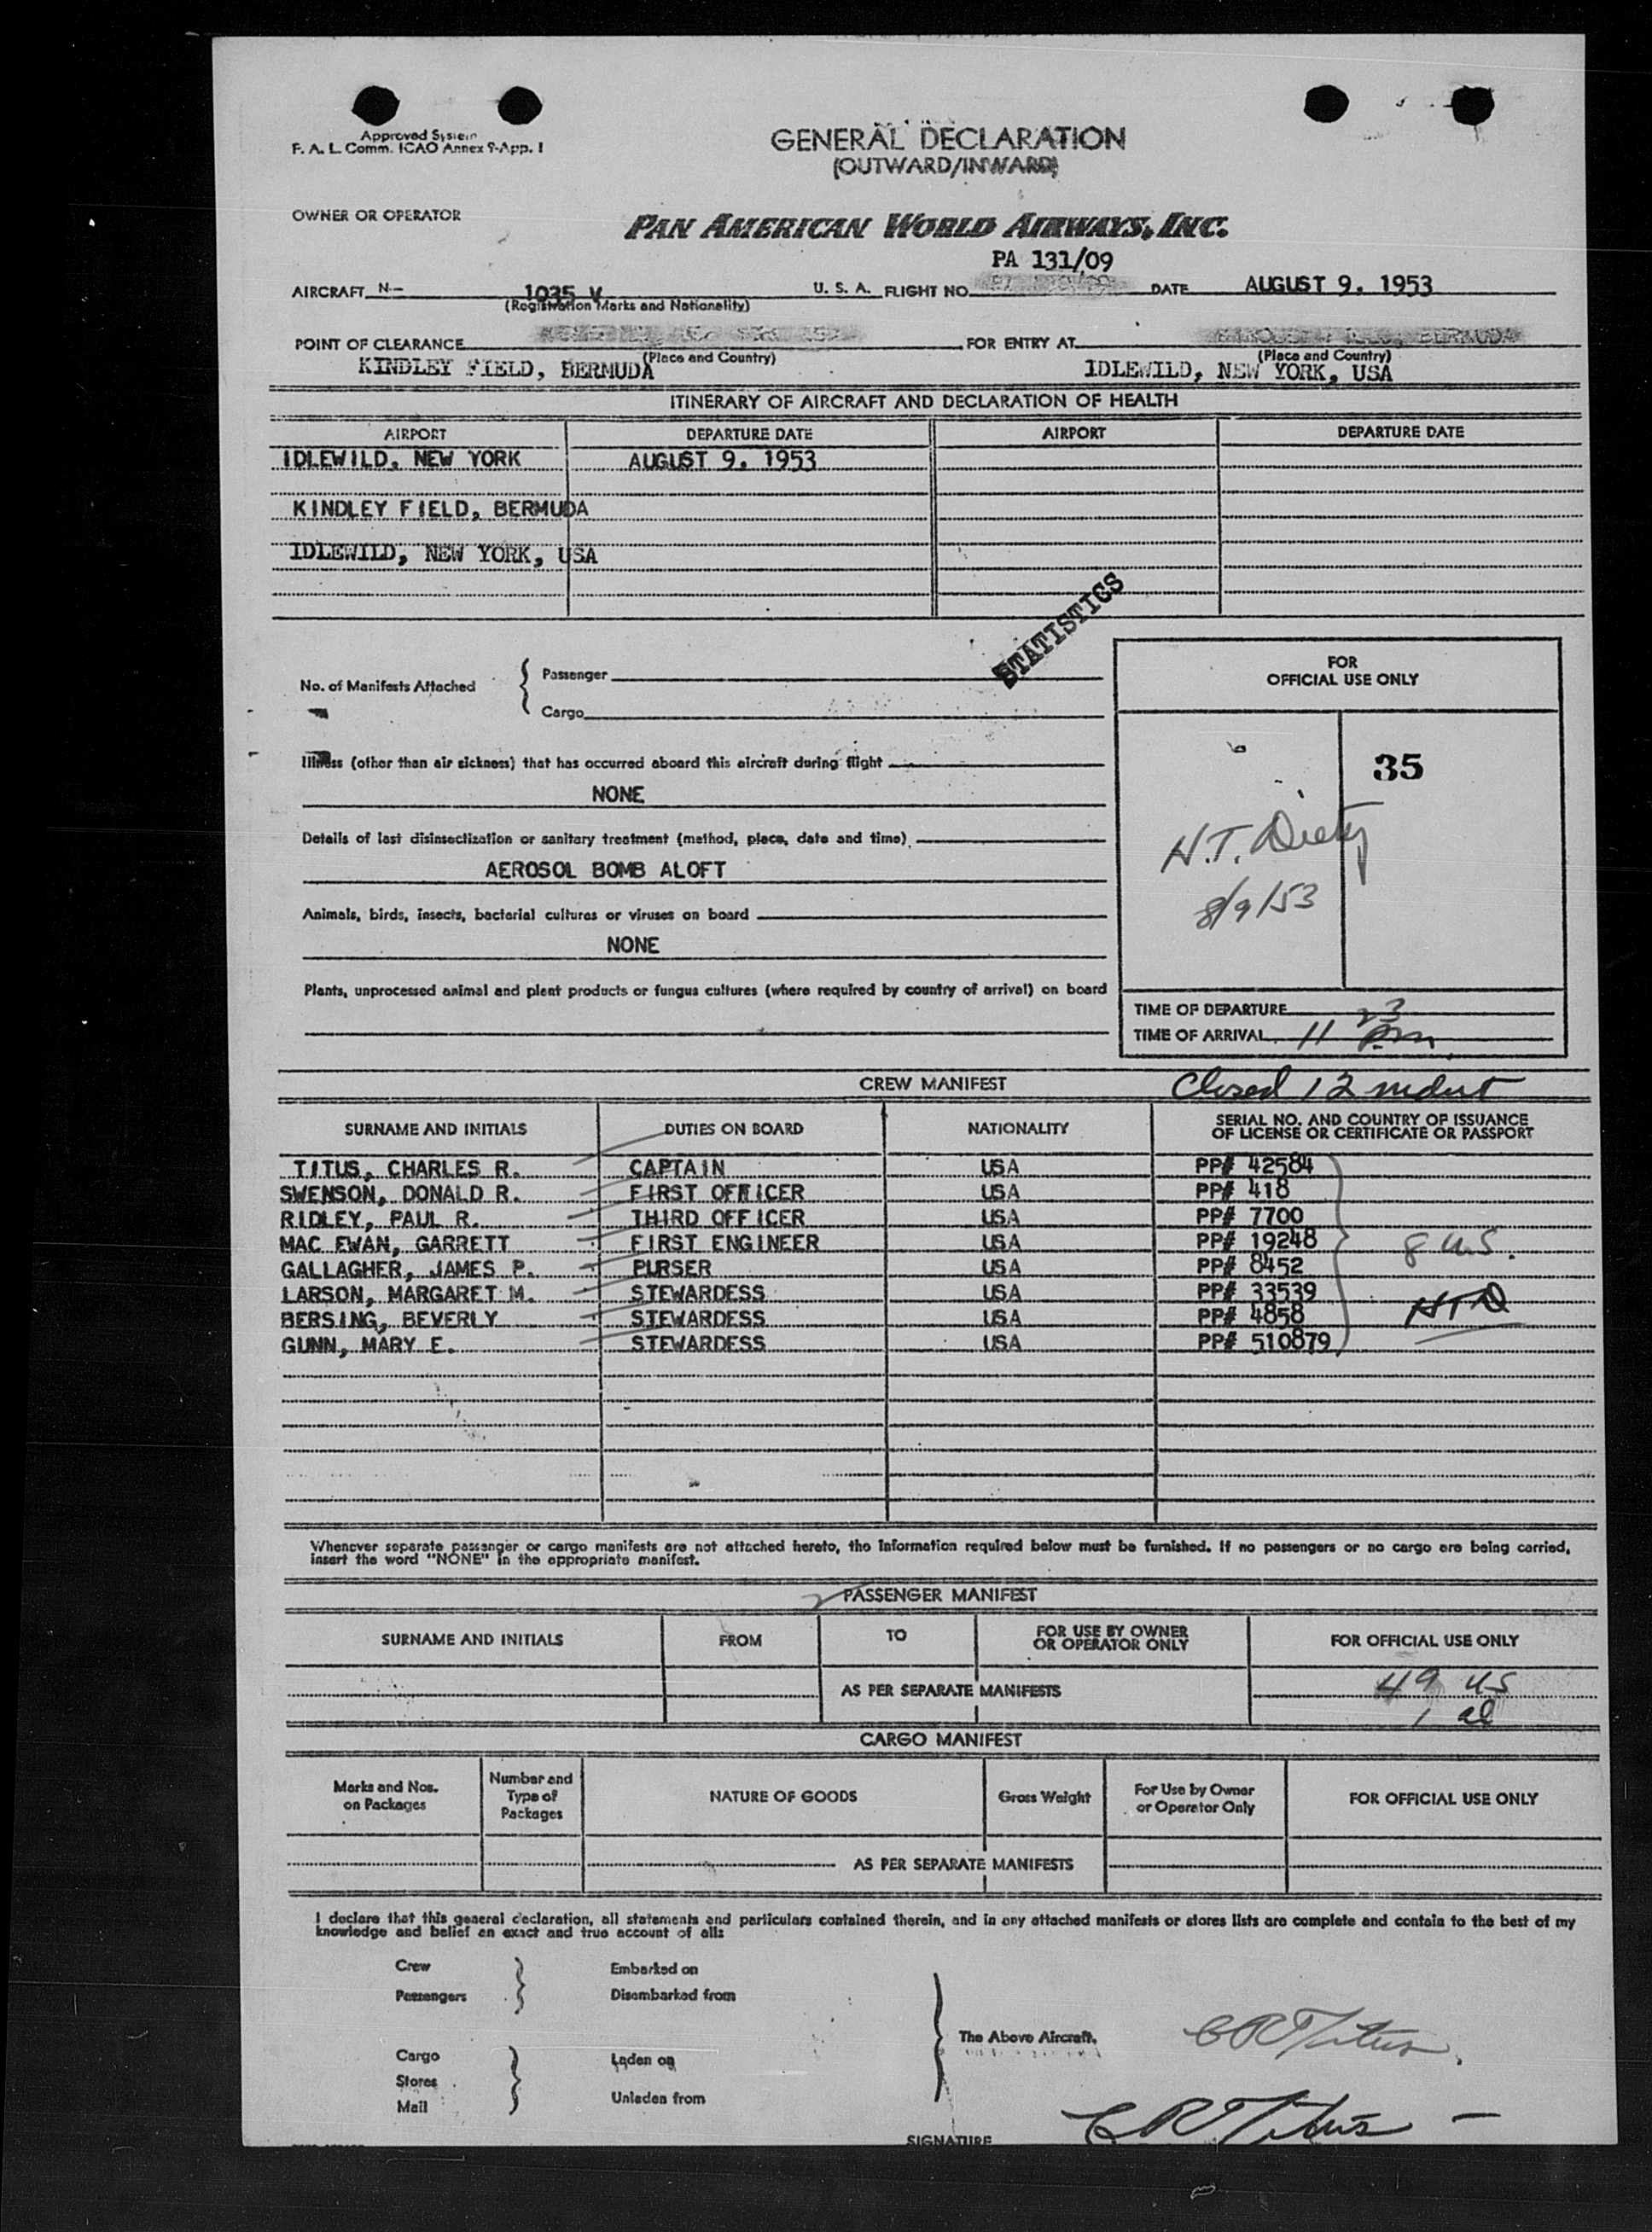 Approved System
F. A. L. Comm. ICAO Annex 9-App. I
GENERAL DECLARATION
(OUTWARD/INWARD)
OWNER OR OPERATOR
PAN AMERICAN WORLD AIRWAYS, INC.
PA 131/09
AIRCRAFT N- 1035 V U. S. A. FLIGHT NO. DATE AUGUST 9, 1953
(Registration Marks and Nationality)
POINT OF CLEARANCE FOR ENTRY AT BERMUDA
(Place and Country) (Place and Country)
KINDLEY FIELD, BERMUDA IDLEWILD, NEW YORK, USA
ITINERARY OF AIRCRAFT AND DECLARATION OF HEALTH
AIRPORT DEPARTURE DATE AIRPORT DEPARTURE DATE
IDLEWILD, NEW YORK AUGUST 9, 1953
KINDLEY FIELD, BERMUDA
IDLEWILD, NEW YORK, USA
STATISTICS
No. of Manifests Attached { Passenger
Cargo
FOR
OFFICIAL USE ONLY
35
Illness (other than air sickness) that has occurred aboard this aircraft during flight
NONE
Details of last disinsectization or sanitary treatment (method, place, date and time)
AEROSOL BOMB ALOFT
H.T.
8/9/53
Animals, birds, insects, bacterial cultures or viruses on board
NONE
Plants, unprocessed animal and plant products or fungus cultures (where required by country of arrival) on board
TIME OF DEPARTURE 23
TIME OF ARRIVAL 11 pm
CREW MANIFEST Closed 12
SURNAME AND INITIALS DUTIES ON BOARD NATIONALITY SERIAL NO. AND COUNTRY OF ISSUANCE
OF LICENSE OR CERTIFICATE OR PASSPORT
TITUS, CHARLES R. CAPTAIN USA PP# 42584
SWENSON, DONALD R. FIRST OFFICER USA PP# 418
RIDLEY, PAUL R. THIRD OFFICER USA PP# 7700
MAC EWAN, GARRETT FIRST ENGINEER USA PP# 19248 8 U.S.
GALLAGHER, JAMES P. PURSER USA PP# 8452
LARSON, MARGARET M. STEWARDESS USA PP# 33539
BERSING, BEVERLY STEWARDESS USA PP# 4858 HTD
GUNN, MARY E. STEWARDESS USA PP# 510879
Whenever separate passenger or cargo manifests are not attached hereto, the information required below must be furnished. If no passengers or no cargo are being carried,
insert the word "NONE" in the appropriate manifest.
PASSENGER MANIFEST
SURNAME AND INITIALS FROM TO FOR USE BY OWNER
OR OPERATOR ONLY FOR OFFICIAL USE ONLY
AS PER SEPARATE MANIFESTS 49 US
1 al
CARGO MANIFEST
Marks and Nos.
on Packages Number and
Type of
Packages NATURE OF GOODS Gross Weight For Use by Owner
or Operator Only FOR OFFICIAL USE ONLY
AS PER SEPARATE MANIFESTS
I declare that this general declaration, all statements and particulars contained therein, and in any attached manifests or stores lists are complete and contain to the best of my
knowledge and belief an exact and true account of all:
Crew Embarked on
Passengers Disembarked from
The Above Aircraft. CRTitus.
Cargo Laden on
Stores
Mail Unladen from
SIGNATURE CRTitus